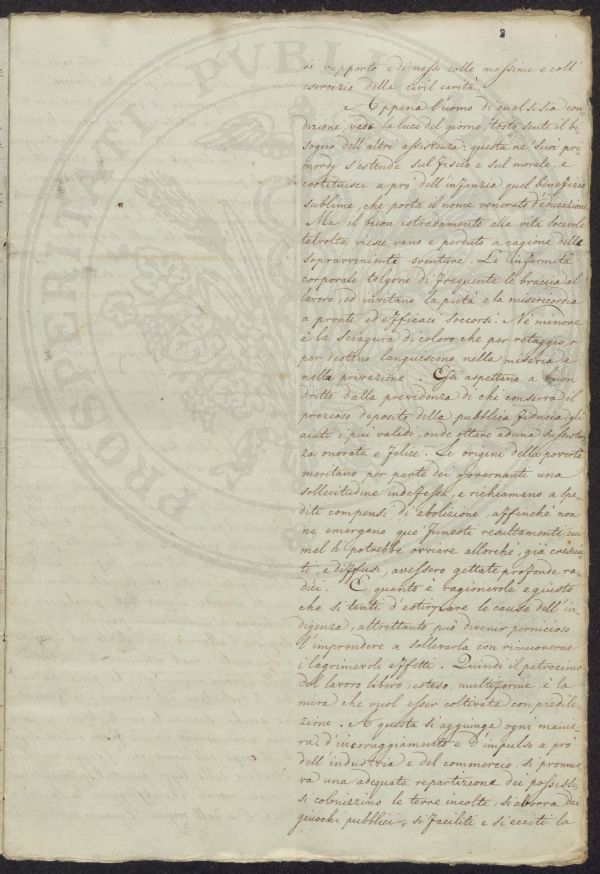 2
di rapporto e di nesso colle massime e coll'
esercizio della civil carità.
Appena l'uomo di qual si sia con
dizione, vede la luce del giorno, tosto sente il bi
sogno dell'altri assistenza: questa ne' suoi pri
mordj s'estende sul fisico e sul morale, e
costituisce a prò dell'infanzia quel benefizio
sublime, che porta il nome venerato d'educazione
Ma il buon istradamento alla vita socevole
talvolta riesce vano e perduto a cagione delle
sopravveniente sventure. Le infermità
corporali tolgono di frequente le braccia al
lavoro, ed invitano la pietà e la misericordia
a pronti ed efficaci soccorsi. Nè minore
è la sciagura di coloro che per retaggio, o
per destino languiscono nella miseria e
nella privazione. Essi aspettano a buon
dritto dalla previdenza di chi conserva il
prezioso deposito della pubblica fiducia gli
aiuti i più validi, onde ottare ad una sussisten
za onorata e felice. Le origini della povertà
meritano per parte dei governanti una
sollecitudine indefessa, e richiamano a spe
diti compensi di abolizione affinchè non
ne emergano que' funesti resultamenti cui
mal si potrebbe ovviare allorchè, già cresciu
ti, e diffusi, avessero gettate profonde ra
dici. E quanto è ragionevole e giusto
che si tenti d'estirpare le cause dell'in
digenza, altrettanto può divenir pernicioso
l'imprendere a sollevarla con rimuoverne
i lagrimevoli effetti. Quindi il patrocinio
del lavoro libero, esteso, multiforme, è la
mira che vuol esser coltivata con predile
zione. A questa si aggiunga ogni manie
ra d'incoraggiamento e d'impulso a prò
dell'industria e del commercio, si promuo
va una adequata repartizione dei possessi,
si colonizzino le terre incolte: si aborra dai
giuochi pubblici, si faciliti e si ecciti la
PVBLI